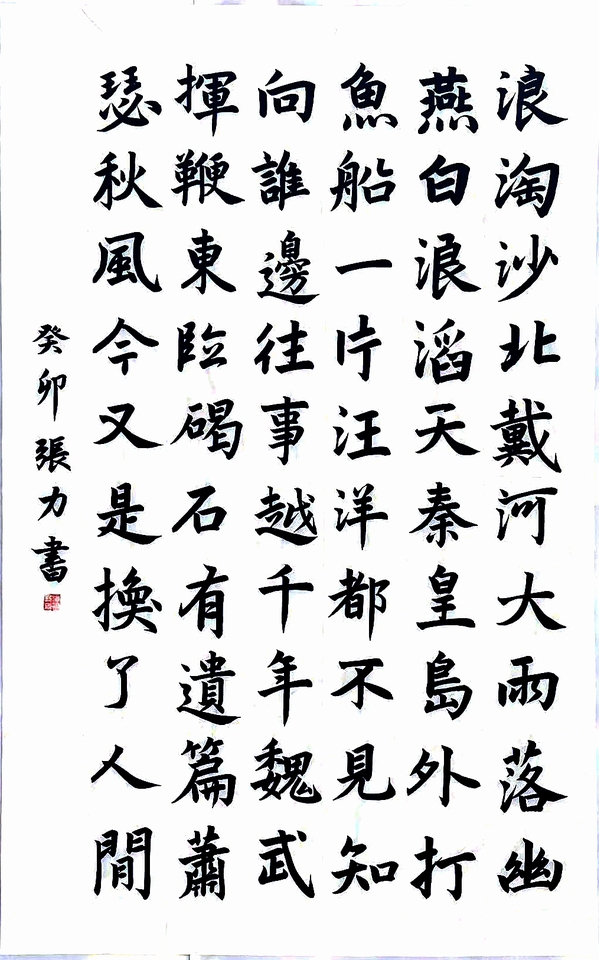 浪淘沙北戴河大雨落幽
燕白浪滔天秦皇島外打
魚船一片汪洋都不見知
向誰邊往事越千年魏武
揮鞭東臨碣石有遺篇蕭
瑟秋風今又是換了人間
癸卯張力書